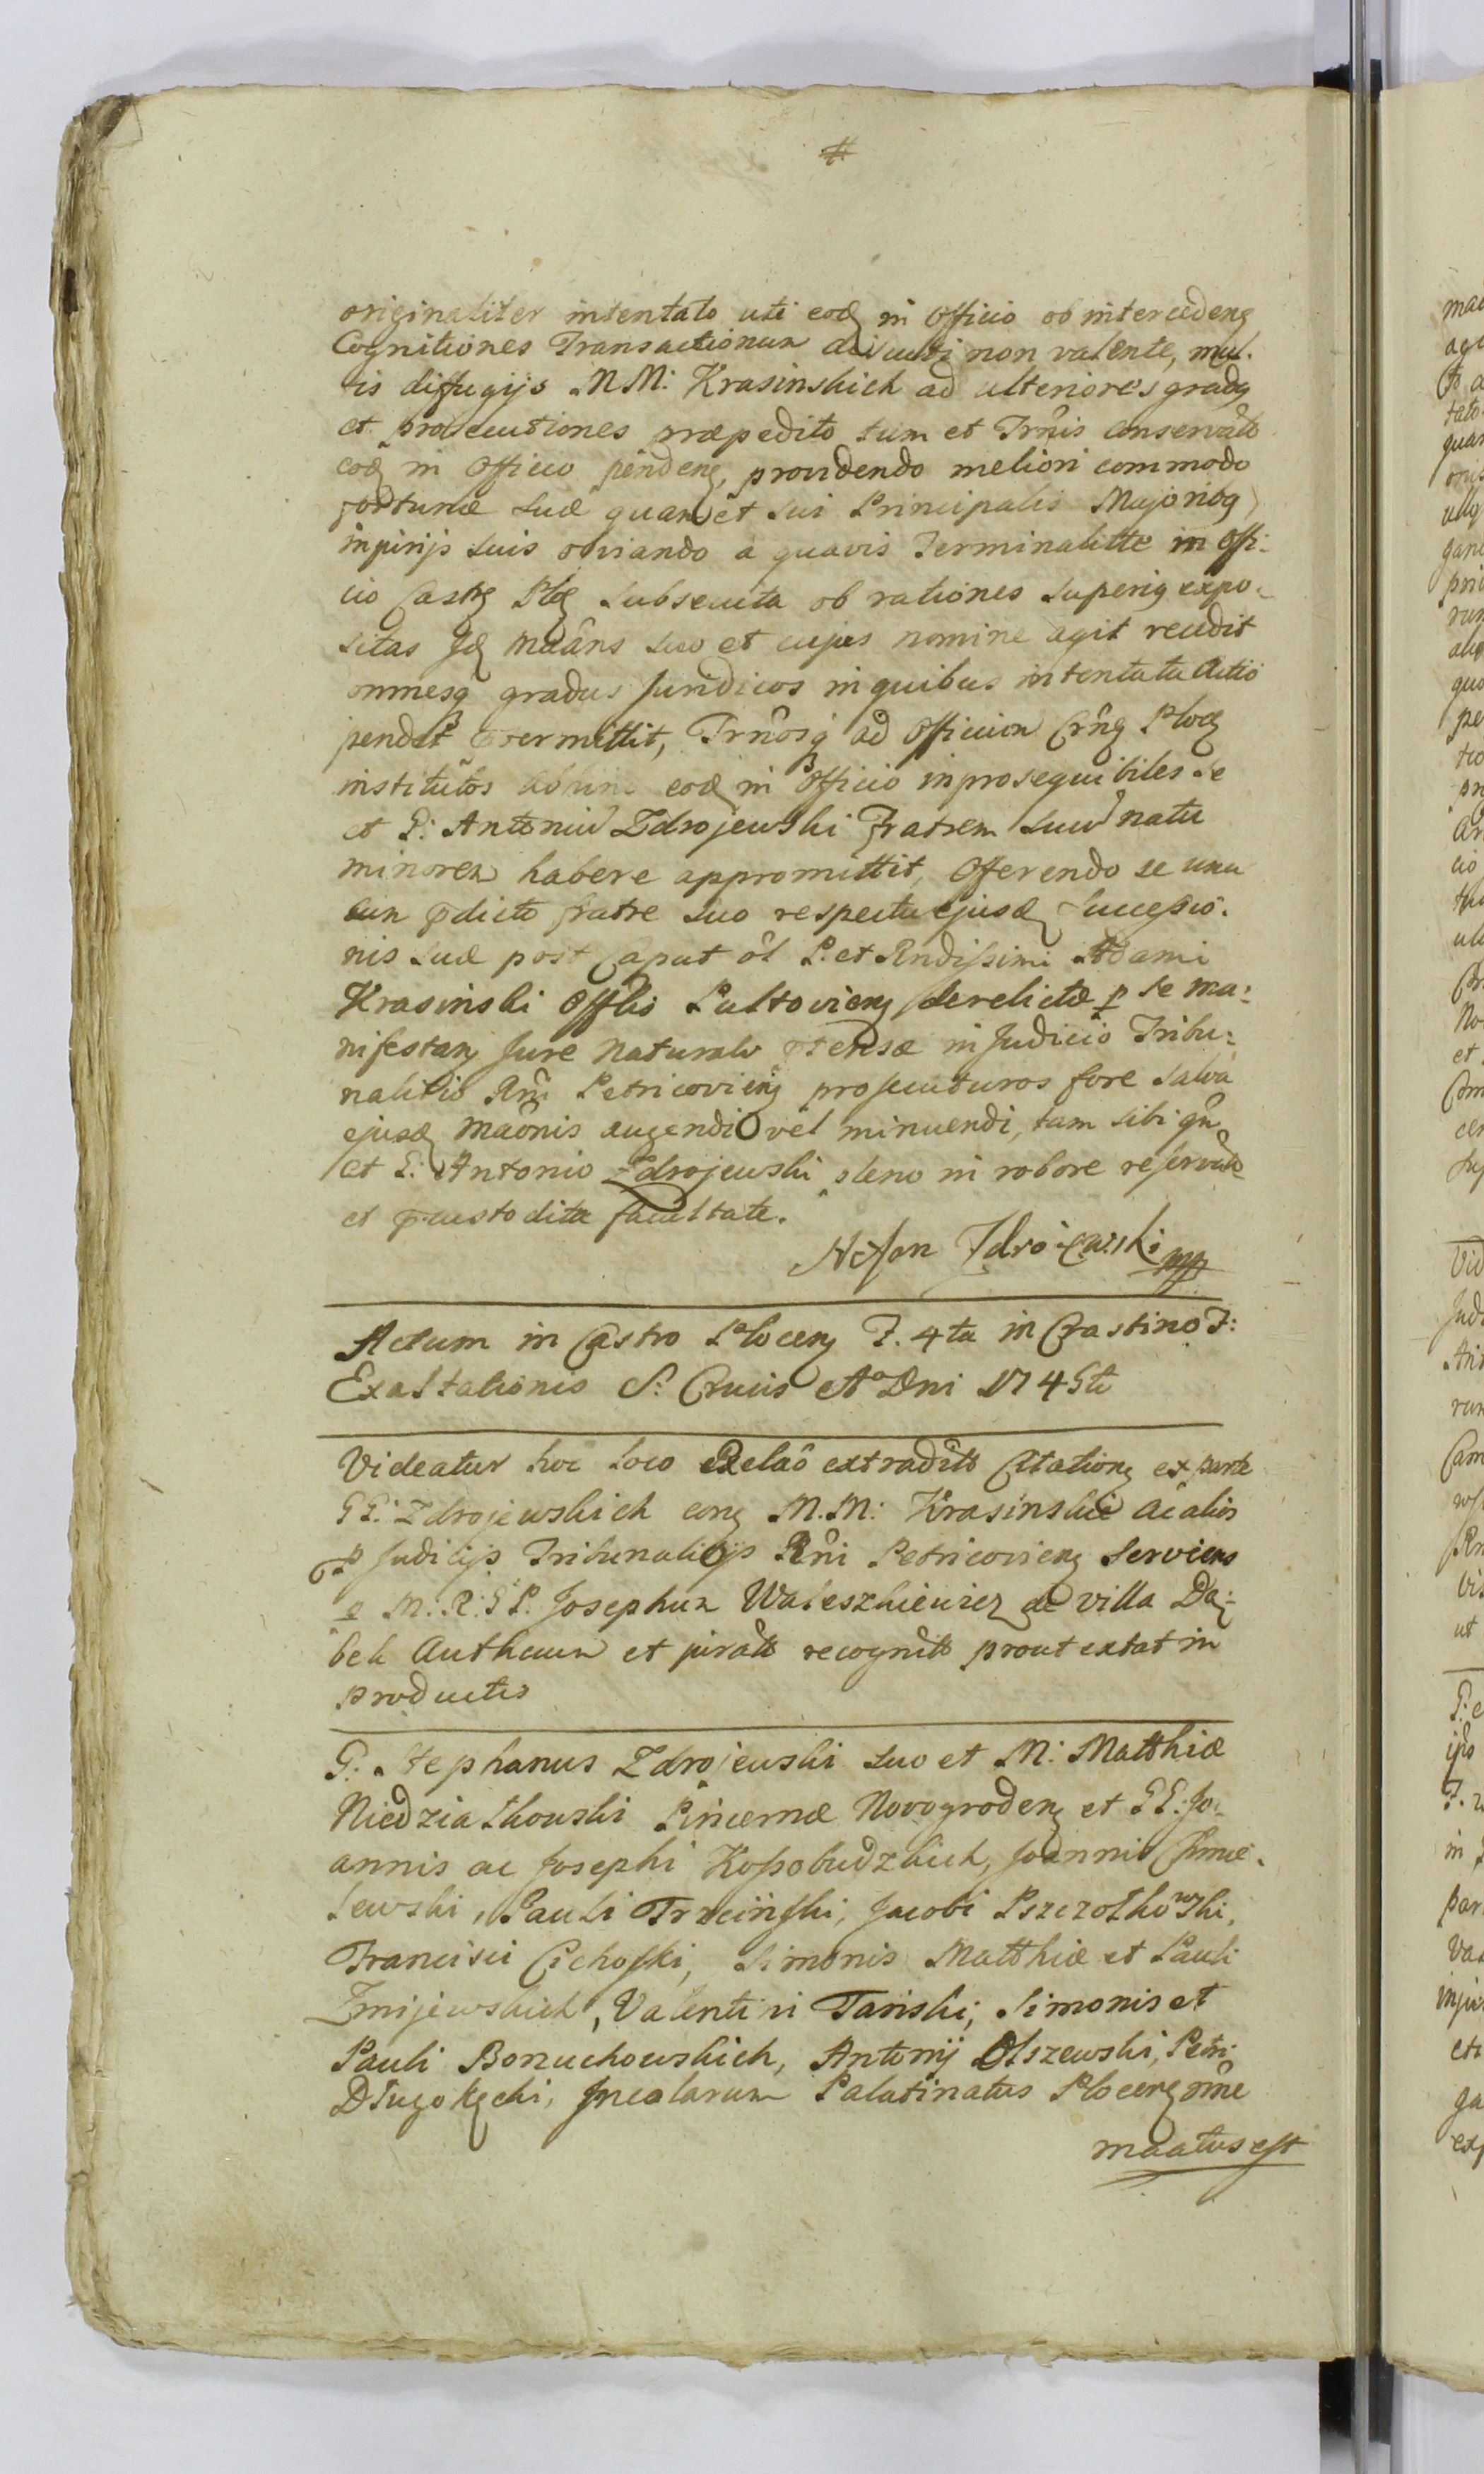 originaliter intentato uti eodę in Officio ob intercedenę
Cognitiones Transactionum non valente, mul-
tis diffugijs MM: Krasinskich ad ulteriores gradꝯ
et prosecutiones præpedito tum et Trnis conservato
eodę in Officio pendenę, providendo meliori commodo
fortunæ suæ quam et sui Principalis Majoribꝯ
impensis suis obviando a quavis Terminalitte in Offi-
cio Castrę Plę subsecuta ob rationes superiꝯ expo-
sitas Idę Maâns suo et cujus nomine agit recedit
omnesq gradus juridicos in quibus intentata Actio
pendet prætermittit, Trnôsq ad Officium Crnę Plocę
institûtos abhinc eodę in Officio inprosequibiles se
et G: Antoniũ Zdrojewski Fratrem suũ natu
minorem habere appromittit, Offerendo se una
cum p̃dicto fratre suo respectu ejusdę Successio-
nis suæ post Caput ol P. et Rndissimi Adami
Krasinski Offlis Pultovienę derelictæ ꝑ se ma-
nifestanę Jure Naturali p̃tensæ in Judicio Tribu-
nalitio Rni Petricovienę prosecuturos fore salva
ejusdę Maônis augendi vel minuendi, tam sibi qm̃
et G: Antonio Zdrojewski pleno in robore reservata
et p̃custodita facultate.
Stefan Zdroiewski mp
Actum in Castro Plocenę F. 4ta in Crastino F:
Exaltationis S: Crucis Aº Dni 1745tȏ
Videatur hoc loco Relaô extradit Citationę ex parte
GG: Zdrojewskich conę M.M: Krasinskie ac alios
p Judicijs Tribunalicijs Rni Petricovienę serviens
ꝑ M. R: G P. Josephum Waleszkiewicz de villa Dą-
bek Authcum et jurati recognit prout extat in
productis
G: Stephanus Zdrojewski suo et M: Matthiæ
Niedziałkowski Pincernæ Novogrodenę et GG: Jo-
annis ac Josephi Kossobudzkich, Joannis Chmie-
lewski, Pauli Trzciński, Jacobi Pszczołkowski,
Francisci Cichoski, Simonis Matthiæ et Pauli
Zmijewskich, Valentini Tański, Simonis et
Pauli Bonuchowskich, Antonij Olszewski, Petri
Długokęcki, Incolarum Palatinatus Plocenę nõie
maatus est